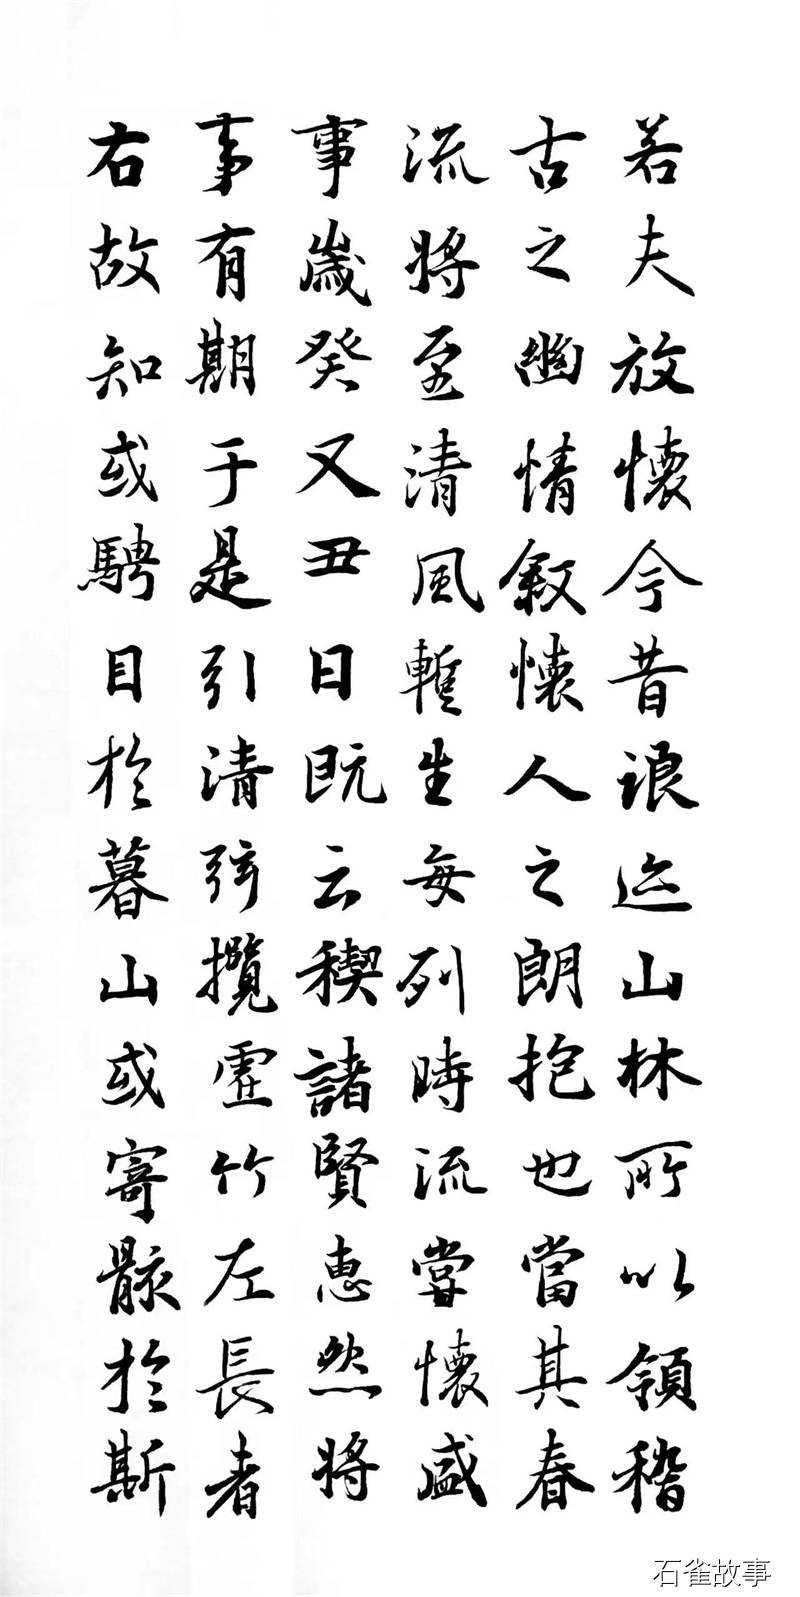 若夫放懷今昔浪迹山林所以領稽
古之幽情敘懷人之朗抱也當其春
流將至清風暫生每列時流嘗懷盛
事歲癸又丑日既云稧諸賢惠然將
事有期于是引清弦攬虛竹左長者
右故知或騁目於暮山或寄骸於斯
石雀故事